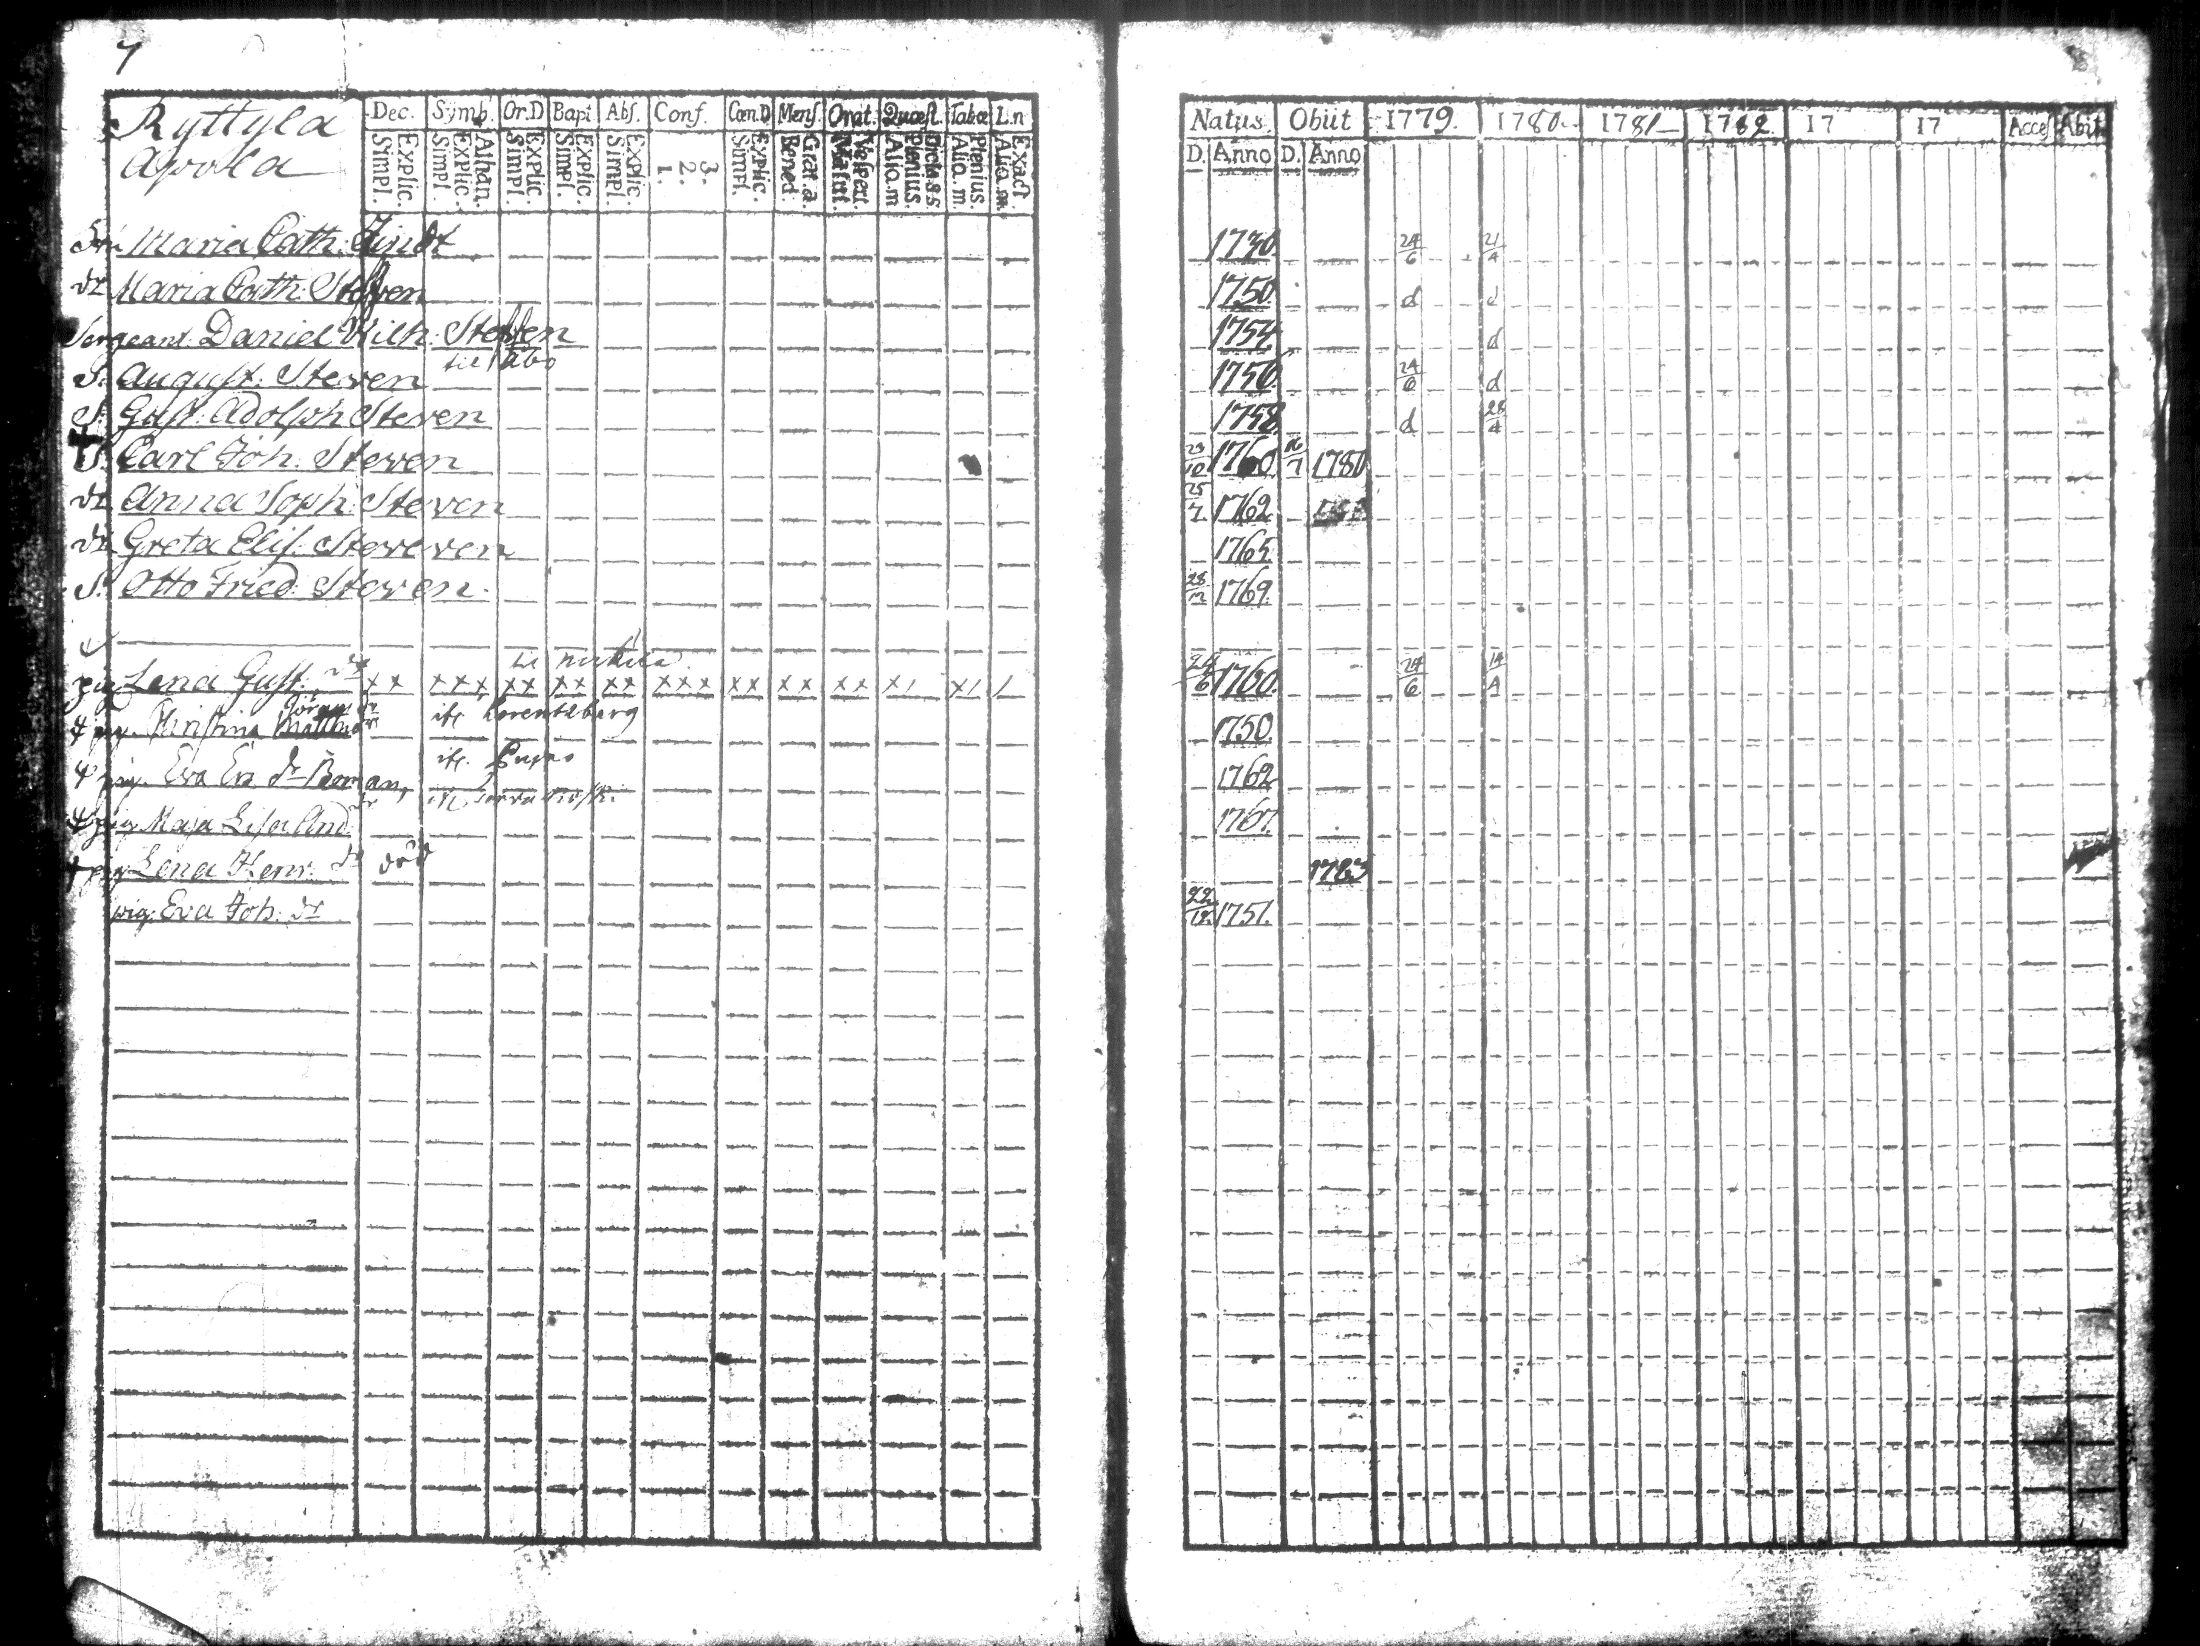 7
Ryttylä
Apola
Dec. Symb. Or.D Bapt Abs. Conf. Cœn.D Mens. Orat. Quæst. Tabœ L.n
Simpl. Explic. Simpl. Explic. Athan. Simpl. Explic. Simpl. Explic. Simpl. Explic. 1. 2. 3. Simpl. Explic. Bened. Grat. a. Matut. Vespert. Aliq. m Plenius. Dicta s s Aliq. m. Plenius. Aliq. m. Exact.
Natus. Obiit 1779. 1780. 1781 1782 17 17 Acces Abit
D. Anno D. Anno
Maria Cath: Lindt 1730. 24/6 21/4
dr Maria Cath: Steven 1750. d d
Sergeant Daniel Wilh: Steven 1754 d
til Åbo
S. August. Steven 1756. 24/6 d
S. Gust. Adolph Steven 1758 d 28/4
S. Carl Joh. Steven 23/10 1760. 16/7 1780
dr Anna Soph: Steven 25/7 1762
dr Greta Elis. Steveven 1765.
S. Otto Fried: Steven. 28/12 1769.
pig Lena Gust. dr x x x x x x x x x x x x x x x x x x x x x x 1 x 1 1 24/6 1760. 24/6 14/4
Göran dr
pig. Christina Lorentzberg 1750.
pig. Eva Er. dr Boman, 1762
pig Maja Lisa 1767.
pig Lena Henr. dr död 1783
pig. Eva Joh. dr 22/12 1751.